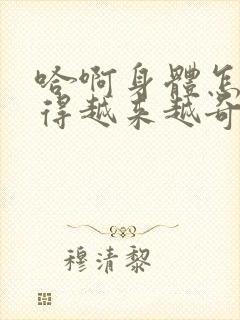 哈啊身體怎
得越来越奇
穆清黎